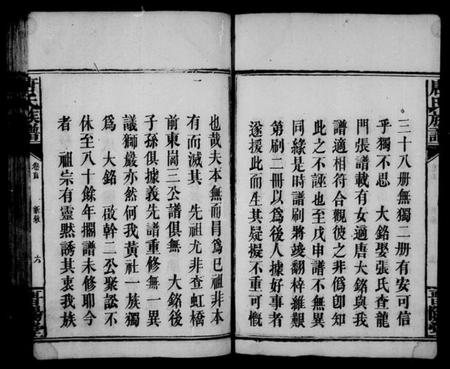 三十八册無獨二册有安可信
乎獨不思 大銘娶張氏查龍
門張譜載有女適唐大銘與我
譜適相符合觀彼之非僞卽知
此之不誣也至戊申譜不無異
同緣是時譜刷將竣翻梓維艱
第刷二冊以爲後人據好事者
遂援此而生其疑擬不重可慨
也哉夫本無而冒爲已祖非本
有而滅其 先祖尤非查虹橋
前東園三公譜俱無 大銘後
子孫俱據義先譜重修無一異
議獅巖亦然何我黃社一族獨
爲 大銘 啟幹二公聚訟不
休至八十餘年攔譜未修耶今
者 祖宗有靈黙誘其衷我族
唐氏族譜
卷首
六